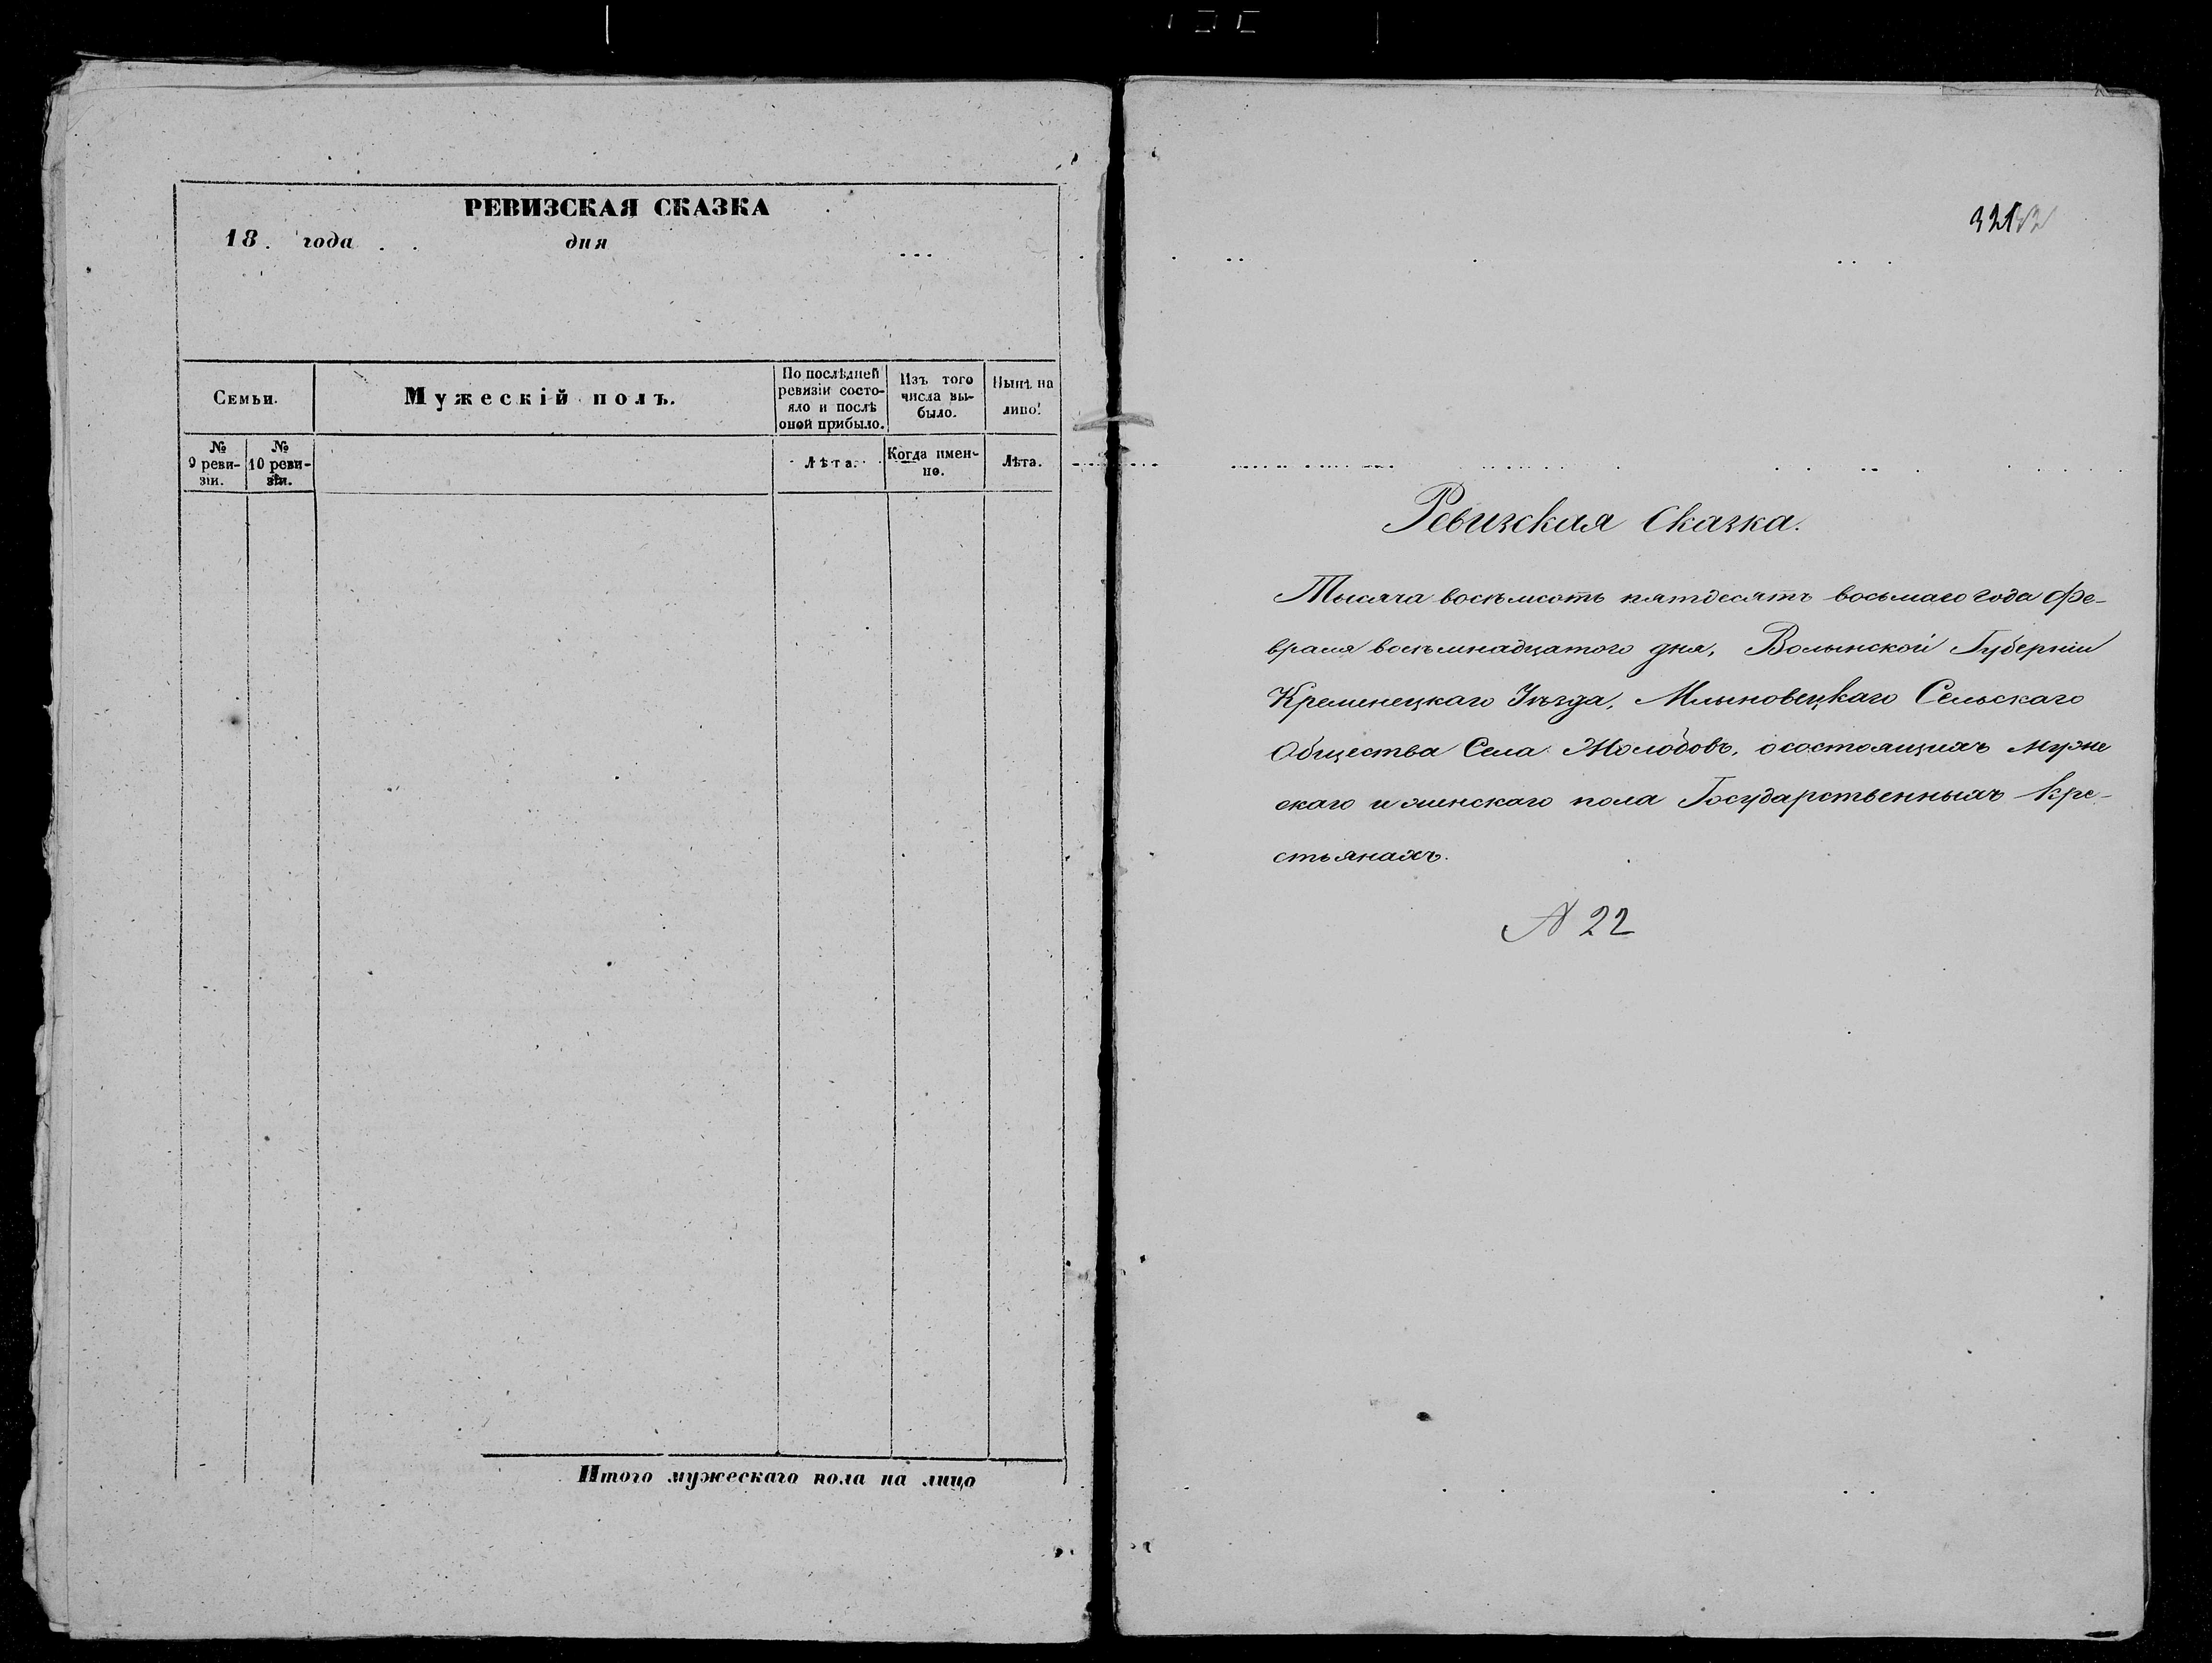 РЕВИЗСКАЯ СКАЗКА
18 . года . . дня
Семьи.
Мужескій полъ.
По послѣдней
ревизіи состо-
яло и послѣ
оной прибыло.
Изъ того
числа вы-
было.
Нынѣ на
лицо.
№
9 реви-
зіи.
№
10 реви-
зіи.
Лѣта.
Когда имен-
но.
Лѣта.
Итого мужескаго пола на лицо
321
Ревизская Сказка.
Тысяча восъмсотъ пятдесятъ восьмаго года Фе-
враля восъмнадцатого дня, Волынской Губерніи
Кременецкаго Уѣзда, Млыновецкаго Сельскаго
Общества Села Жолобовъ, о состоящихъ муже
скаго и женскаго пола Государственныхъ Кре-
стьянахъ.
№ 22